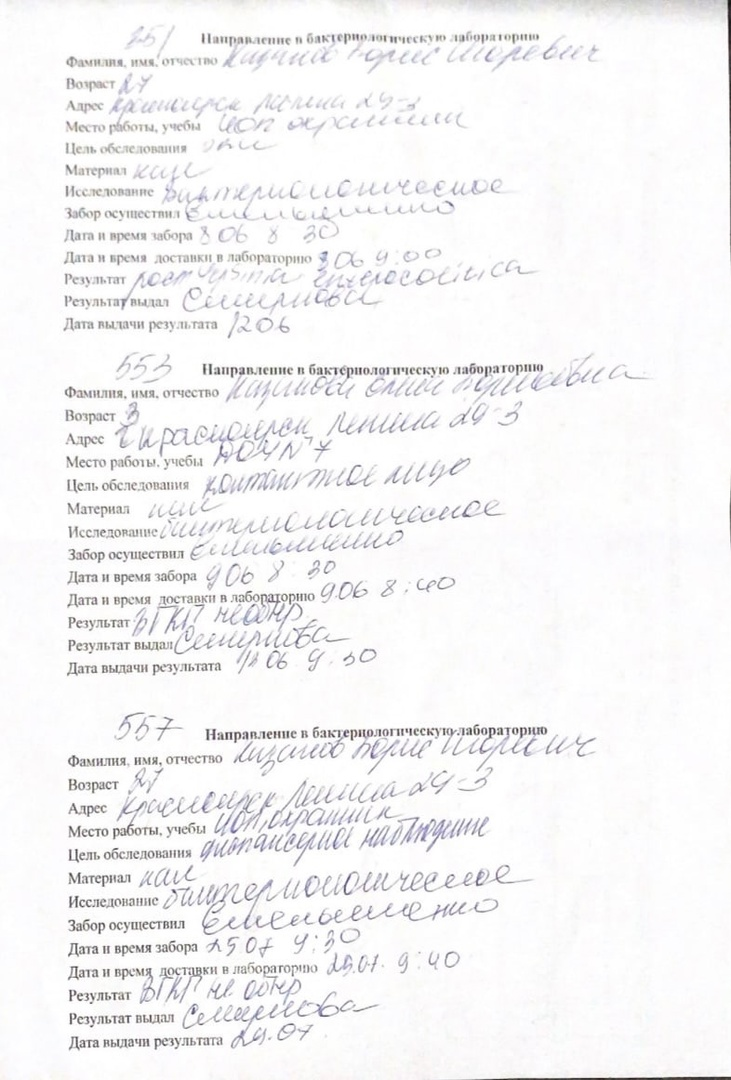 251 Направление в бактериологическую лабораторию
Фамилия, имя, отчество Казаков Борис Игоревич
Возраст 27
Адрес Красноярск Ленина 29-3
Место работы, учебы ЧОП охранник
Цель обследования
Материал кал
Исследование бактериологическое
Забор осуществил Емельяненко
Дата и время забора 8 06 8 30
Дата и время доставки в лабораторию 8 06 9:00
Результат рост
Результат выдал Смирнова
Дата выдачи результата 12 06
553 Направление в бактериологическую лабораторию
Фамилия, имя, отчество Казакова Борисовна
Возраст 3
Адрес г Красноярск Ленина 29-3
Место работы, учебы ДОУ №7
Цель обследования контактное лицо
Материал кал
Исследование бактериологическое
Забор осуществил Емельяненко
Дата и время забора 9 06 8:30
Дата и время доставки в лабораторию 9.06 8:40
Результат ВГКП не обнр
Результат выдал Смирнова
Дата выдачи результата 06 9.30
557 Направление в бактериологическую лабораторию
Фамилия, имя, отчество Казаков Борис Игоревич
Возраст 27
Адрес Красноярск Ленина 29-3
Место работы, учебы ЧОП, охранник
Цель обследования диспансерное наблюдение
Материал кал
Исследование бактериологическое
Забор осуществил Емельяненко
Дата и время забора 25 07 9:30
Дата и время доставки в лабораторию 25.07. 9:40
Результат ВГКП не обнр
Результат выдал Смирнова
Дата выдачи результата 29.07.